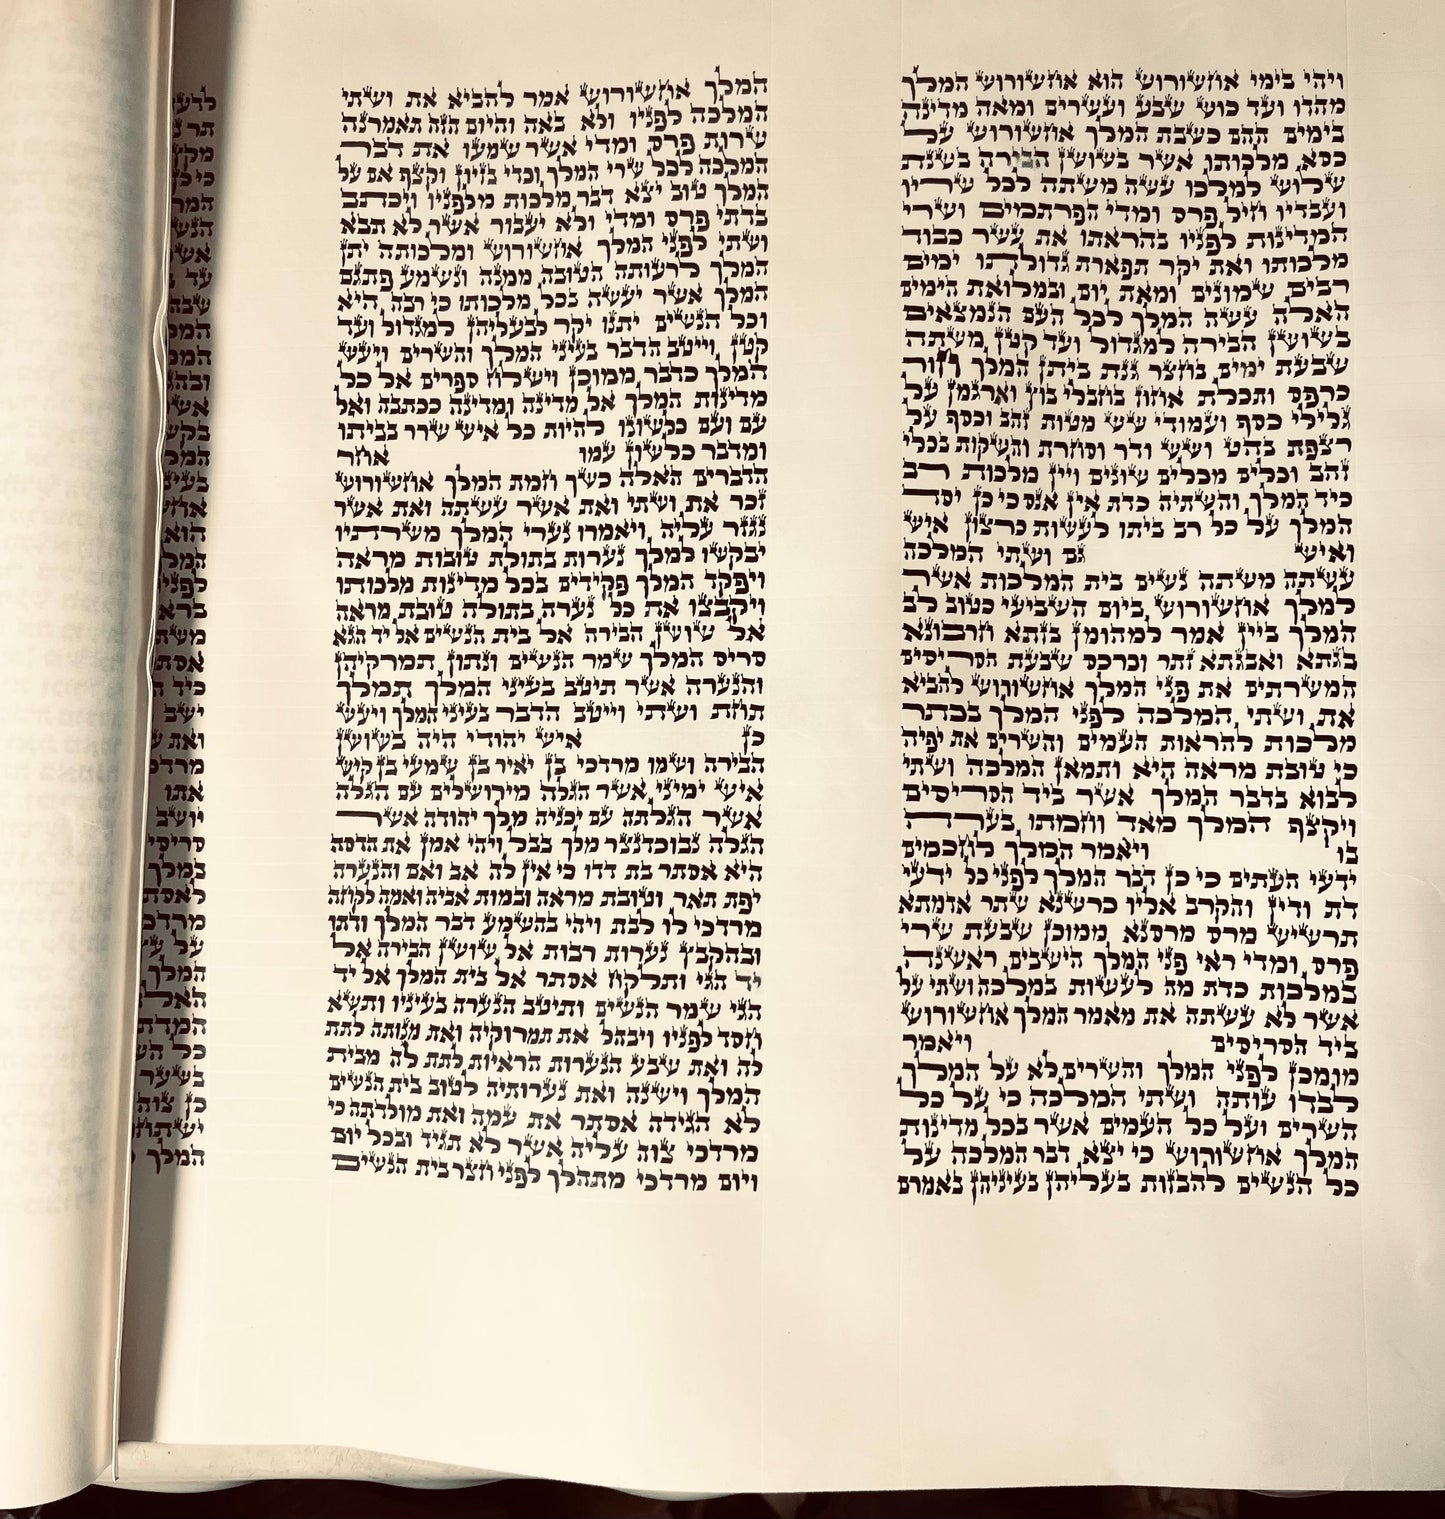 ויהי בימי אחשורוש הוא אחשורוש המלך
מהדו ועד כוש שבע ועשרים ומאה מדינה
בימים ההם כשבת המלך אחשורוש על
כסא מלכותו אשר בשושן הבירה בשנת
שלוש למלכו עשה משתה לכל שריו
ועבדיו חיל פרס ומדי הפרתמים ושרי
המדינות לפניו בהראתו את עשר כבוד
מלכותו ואת יקר תפארת גדולתו ימים
רבים שמונים ומאת יום ובמלואת הימים
האלה עשה המלך לכל העם הנמצאים
בשושן הבירה למגדול ועד קטן משתה
שבעת ימים בחצר גנת ביתן המלך חור
כרפס ותכלת אחוז בחבלי בוץ וארגמן על
גלילי כסף ועמודי שש מטות זהב וכסף על
רצפת בהט ושש ודר וסחרת והשקות בכלי
זהב וכלים מכלים שונים ויין מלכות רב
כיד המלך והשתיה כדת אין אנס כי כן יסד
המלך על כל רב ביתו לעשות כרצון איש
ואיש גם ושתי המלכה
עשתה משתה נשים בית המלכות אשר
למלך אחשורוש ביום השביעי כטוב לב
המלך ביין אמר למהומן בזתא חרבונא
בגתא ואבגתא זתר וכרכס שבעת הסריסים
המשרתים את פני המלך אחשורוש להביא
את ושתי המלכה לפני המלך בכתר
מלכות להראות העמים והשרים את יפיה
כי טובת מראה היא ותמאן המלכה ושתי
לבוא בדבר המלך אשר ביד הסריסים
ויקצף המלך מאד וחמתו בערה
בו ויאמר המלך לחכמים
ידעי העתים כי כן דבר המלך לפני כל ידעי
דת ודין והקרב אליו כרשנא שתר אדמתא
תרשיש מרס מרסנא ממוכן שבעת שרי
פרס ומדי ראי פני המלך הישבים ראשנה
במלכות כדת מה לעשות במלכה ושתי על
אשר לא עשתה את מאמר המלך אחשורוש
ביד הסריסים ויאמר
מומכן לפני המלך והשרים לא על המלך
לבדו עותה ושתי המלכה כי על כל
השרים ועל כל העמים אשר בכל מדינות
המלך אחשורוש כי יצא דבר המלכה על
כל הנשים להבזות בעליהן בעיניהן באמרם
המלך אחשורוש אמר להביא את ושתי
המלכה לפניו ולא באה והיום הזה תאמרנה
שרות פרס ומדי אשר שמעו את דבר
המלכה לכל שרי המלך וכדי בזיון וקצף אם על
המלך טוב יצא דבר מלכות מלפניו ויכתב
בדתי פרס ומדי ולא יעבור אשר לא תבא
ושתי לפני המלך אחשורוש ומלכותה יתן
המלך לרעותה הטובה ממנה ונשמע פתגם
המלך אשר יעשה בכל מלכותו כי רבה היא
וכל הנשים יתנו יקר לבעליהן למגדול ועד
קטן וייטב הדבר בעיני המלך והשרים ויעש
המלך כדבר ממוכן וישלח ספרים אל כל
מדינות המלך אל מדינה ומדינה ככתבה ואל
עם ועם כלשונו להיות כל איש שרר בביתו
ומדבר כלשון עמו אחר
הדברים האלה כשך חמת המלך אחשורוש
זכר את ושתי ואת אשר עשתה ואת אשר
נגזר עליה ויאמרו נערי המלך משרתיו
יבקשו למלך נערות בתולת טובות מראה
ויפקד המלך פקידים בכל מדינות מלכותו
ויקבצו את כל נערה בתולה טובת מראה
אל שושן הבירה אל בית הנשים אל יד הגא
סריס המלך שמר הנשים ונתון תמרקיהן
והנערה אשר תיטב בעיני המלך תמלך
תחת ושתי וייטב הדבר בעיני המלך ויעש
כן איש יהודי היה בשושן
הבירה ושמו מרדכי בן יאיר בן שמעי בן קיש
איש ימיני אשר הגלה מירושלים עם הגלה
אשר הגלתה עם יכניה מלך יהודה אשר
הגלה נבוכדנצר מלך בבל ויהי אמן את הדסה
היא אסתר בת דדו כי אין לה אב ואם והנערה
יפת תאר וטובת מראה ובמות אביה ואמה לקחה
מרדכי לו לבת ויהי בהשמע דבר המלך ודתו
ובהקבץ נערות רבות אל שושן הבירה אל
יד הגי ותלקח אסתר אל בית המלך אל יד
הגי שמר הנשים ותיטב הנערה בעיניו ותשא
חסד לפניו ויבהל את תמרוקיה ואת מנותה לתת
לה ואת שבע הנערות הראיות לתת לה מבית
המלך וישנה ואת נערותיה לטוב בית הנשים
לא הגידה אסתר את עמה ואת מולדתה כי
מרדכי צוה עליה אשר לא תגיד ובכל יום
ויום מרדכי מתהלך לפני חצר בית הנשים
עד
הוא
כיד
ואת
אתו
יושב
סריסי
במלך
על
המלך
כל
בשער
כן צוה
המלך